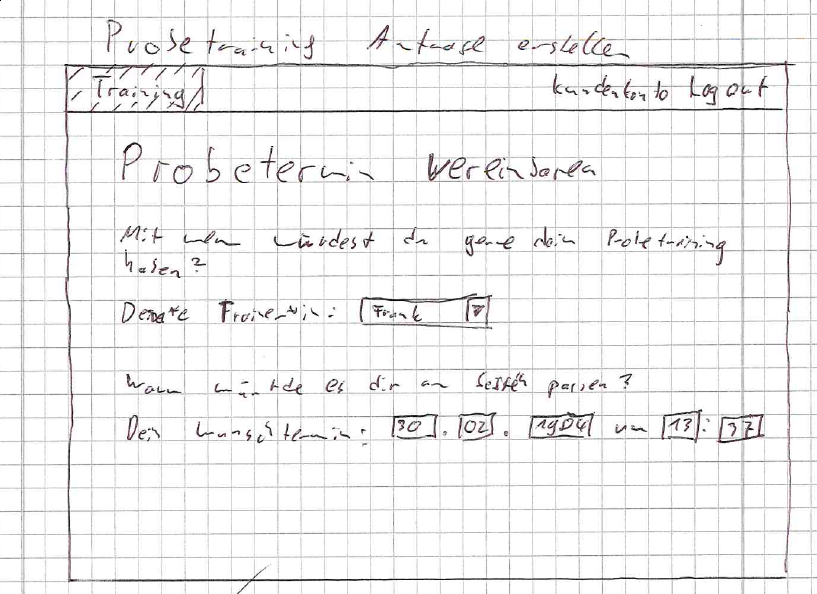 Probetraining Antrag erstellen
Training Kundenkonto Log out
Probetermin vereinbaren
Mit wem würdest du gerne dein Probetraining
haben?
Trainer*in: Frank
Wann würde es dir am besten passen?
Dein Wunschtermin: 30 . 02 . 1904 um 13 : 37